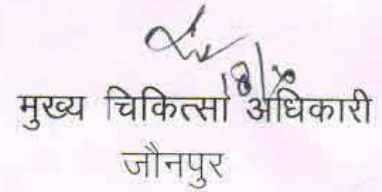 मुख्य चिकित्सा अधिकारी
जौनपुर